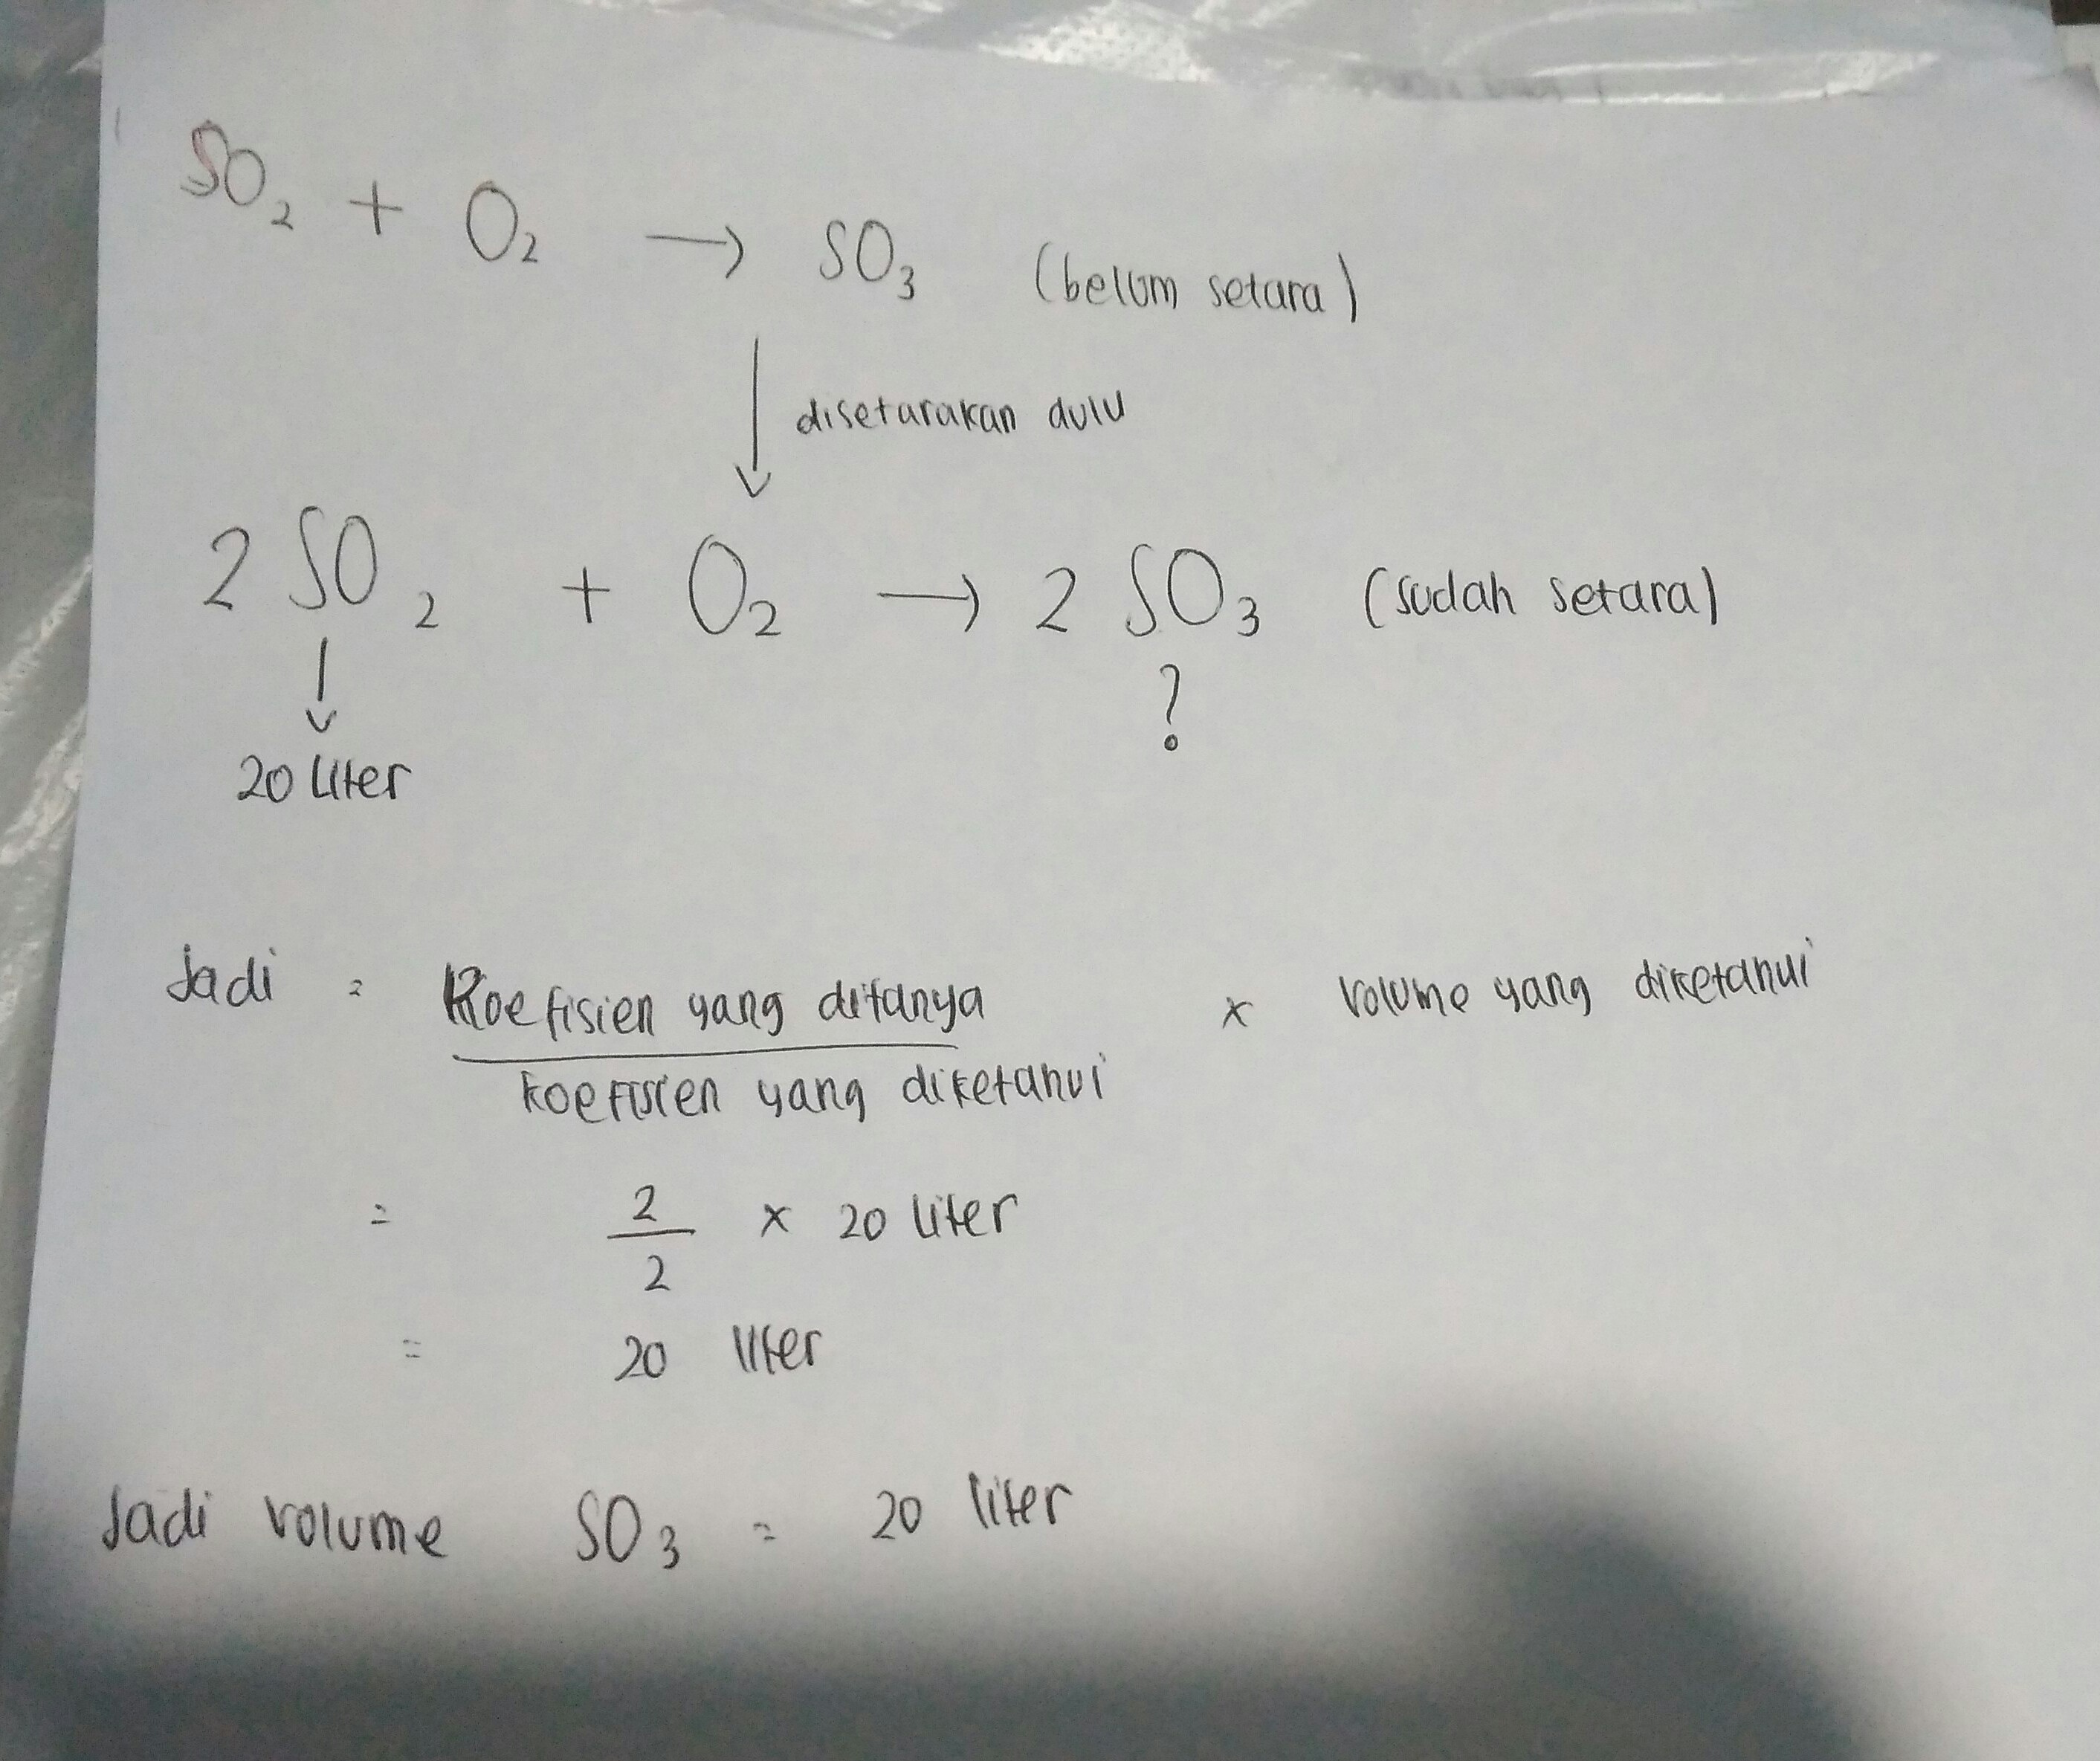 SO₂ + O₂ → SO₃ (belum setara)
↓ disetarakan dulu
2 SO₂ + O₂ → 2 SO₃ (sudah setara)
↓ ?
20 liter
Jadi = Koefisien yang ditanya / koefisien yang diketahui x volume yang diketahui
= 2/2 x 20 liter
= 20 liter
Jadi volume SO₃ = 20 liter